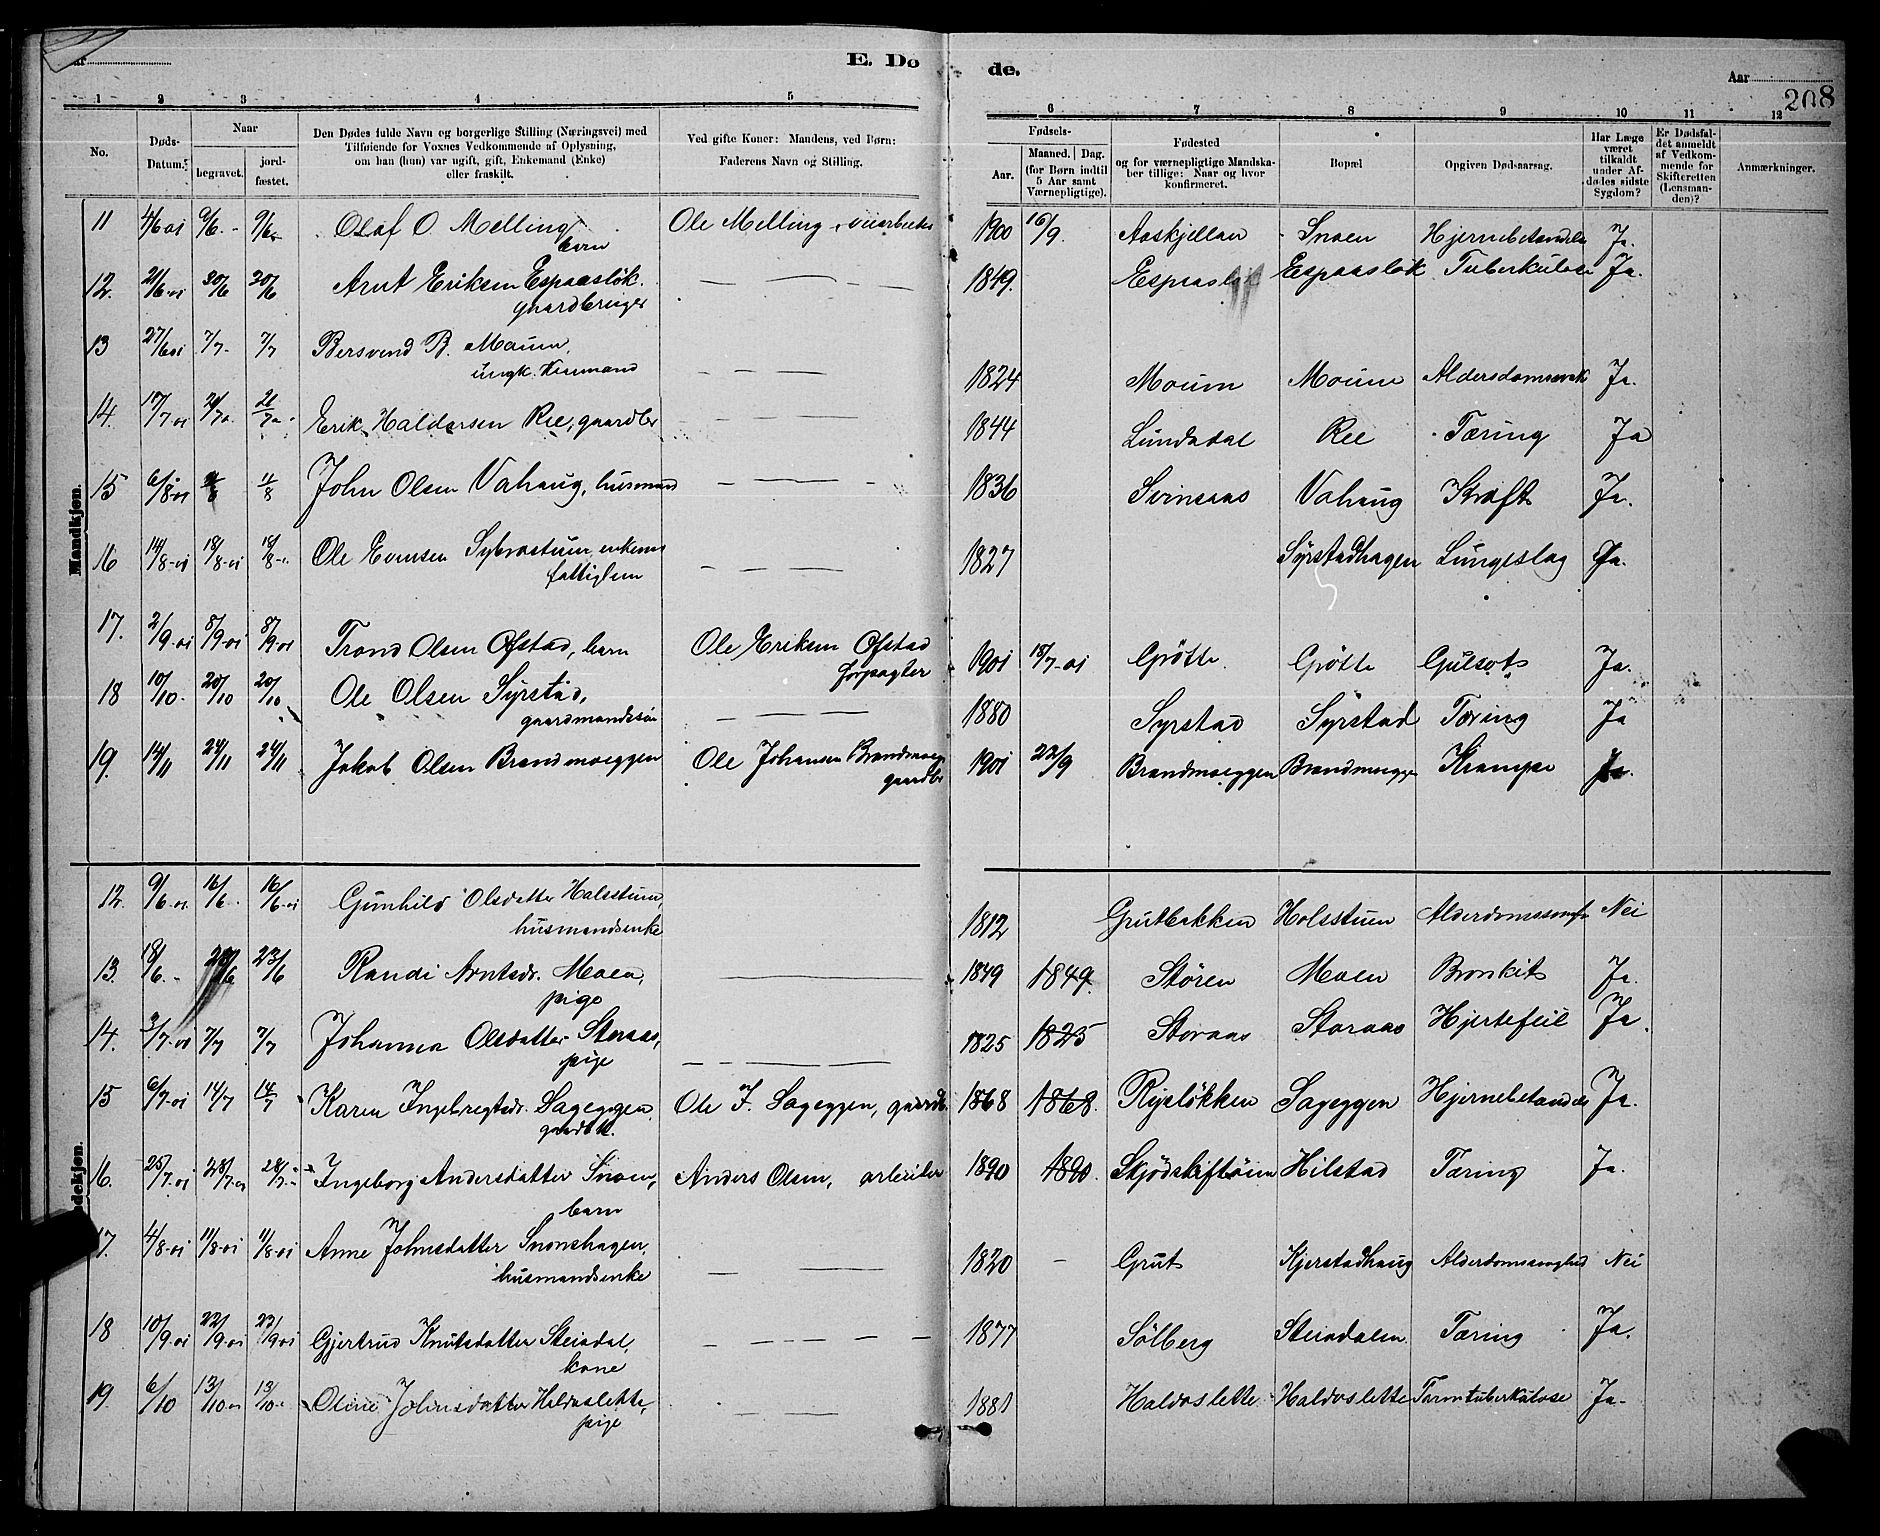 E. Dø
de.
Aar
208
1 2 3 4 5 6 7 8 9 10 11 12
No.
Døds-Datum.
Naar
begravet.
jord-fæstet.
Den Dødes fulde Navn og borgerlige Stilling (Næringsvei) med
Tilføiende for Voxnes Vedkommende af Oplysning,
om han (hun) var ugift, gift, Enkemand (Enke)
eller fraskilt.
Ved gifte Koner: Mandens, ved Børn:
Faderens Navn og Stilling.
Fødsels-
Aar.
Maaned. Dag.
(for Børn indtil
5 Aar samt
Værnepligtige).
Fødested
og for værnepligtige Mandska-
ber tillige: Naar og hvor
konfirmeret.
Bopæl
Opgiven Dødsaarsag.
Har Læge
været
tilkaldt
under Af-
dødes sidste
Sygdom?
Er Dødsfal-
det anmeldt
af Vedkom-
mende for
Skifteretten
(Lensman-
den)?
Anmærkninger.
Mandkjøn.
11 4/6 01 9/6 - 9/6 Olaf O. Melling Ole Melling, veiarbeider 1900 16/9 Aaskjellan Snoen Hjernebetændelse Ja.
barn
12. 21/6-01 30/6 30/6 Arnt Eriksen Espaasløk. 1849. Espaasløk Espaasløk Tuberkulose Ja.
gaardbruger
13 27/6 01 7/7- 7/7 Bersvend B. Moum, 1824 Moum Moum Ja.
ungk.
14. 17/7 01 Erik Haldorsen Ree, gaardbr 1844 Lundadal Ree Tæring Ja
15 6/8-01 11/8 John Olsen Vahaug, husmand 1836 Svinsaas Vahaug Kræft Ja.
16 14/8-01 18/8-01 18/8 Ole 1827 Syrstadhagen Lungeslag Ja.
fattiglem
17. 2/9-01 8/9-01 8/9 01 Trond Olsen Øfstad, barn Ole Eriksen Øfstad 1901 18/7-01 Grøtte. Grøtte Gulsot Ja.
forpagter
18 10/10- 20/10 20/10 Ole Olsen Syrstad, 1880 Syrstad Syrstad Tæring Ja
gaardmandssøn
19. 14/11 24/11 24/11 Jakob Olsen Brandmoeggen Ole Johansen Brandmoegg 1901 22/9 Brandmoeggen Brandmoegge Krampe Ja.
gaardbr
12. 9/6-01 16/6- 16/6-01 Gunhild Olsdatter Halsstuen, 1812 Grutbakken Holsstuen Nei
husmandsenke
13. 18/6- 23/6 23/6 Randi Arntsdr. Moen, 1849 1849. Støren Moen Bronkit Ja.
pige
14. 3/7-01 7/7 7/7 Johanna Olsdatter Storaas, 1825 1825 Storaas Storaas Hjertefeil Ja.
pige
15 6/7-01 14/7 14/7 Karen Ingebregtsdr. Sageggen, Ole J. Sageggen, gaardb. 1868 1868. Sageggen Hjernebetændelse Ja.
gaardbk.
16. 25/7-01 28/7-01 28/7- Ingeborg Andersdatter Snoen, Anders Olsen, arbeider 1890 1890. Hilstad Tæring Ja.
barn
17. 4/8-01 11/8-01 11/8-01 Anne Johnsdatter Snoushagen, 1820 - Grut Kjerstadhaug Alderdomssvaghed Nei
husmandsenke
18 10/9-01 22/9-01 22/9 01 Gjertrud Knutsdatter Steindal, 1877 Sølberg Steindalen Tæring Ja.
kone
19. 6/10 13/10-01 13/10- Oline Johnsdatter Haldoslette, 1881 Haldoslette Haldoslette Tarmtuberkulose Ja-
pige